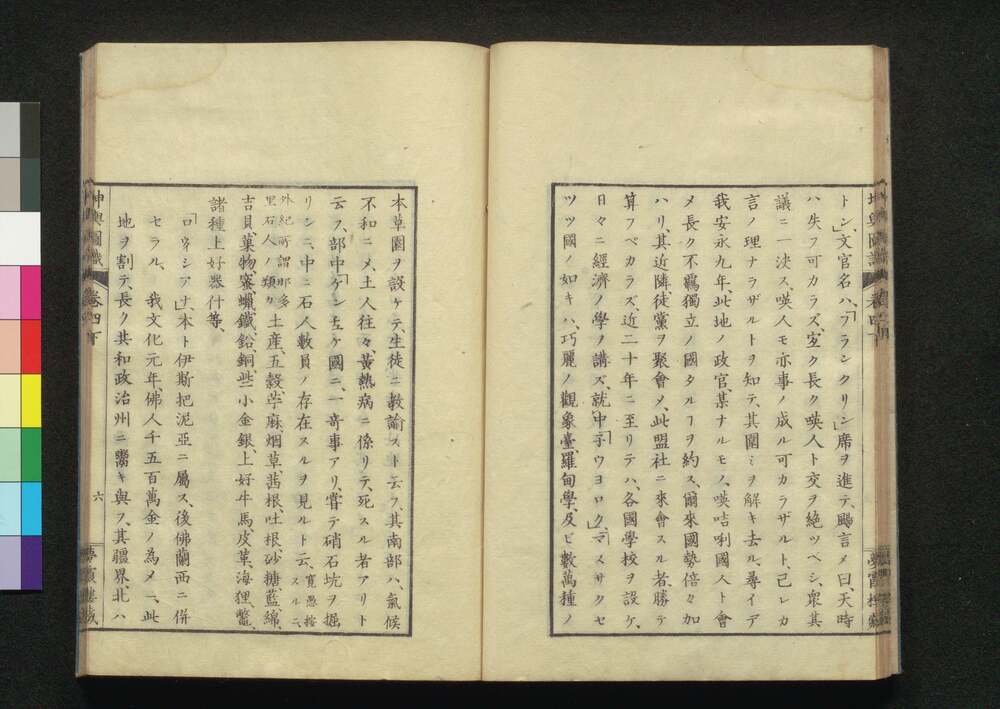 トン、文官名ハ、「フランクリン」席ヲ進テ、颺言メ曰、天時
ハ失フ可カラズ、宜ク長ク嘆人ト交ヲ絶ツベシ、衆其
議ニ一決ス、嘆人モ亦事ノ成ル可カラザルト、己レカ
言ノ理ナラザルトヲ知テ、其圍ミヲ解キ去ル、尋イテ
我安永九年、此地ノ政官、某ナルモノ、嘆咭唎國人ト會
メ長ク不羈獨立ノ國タルヿヲ約ス、爾來國勢倍々加
ハリ、其近隣徒黨ヲ聚會メ、此盟社ニ來會スル者、勝テ
算フベカラズ、近二十年ニ至リテハ、各國學校ヲ設ケ、
日々ニ經濟ノ學ヲ講ズ、就中「子ウヨロク」「マスサクセ
ツツ國ノ如キハ、巧麗ノ觀象臺、羅甸學、及ビ數萬種ノ
本草園ヲ設ケテ、生徒ニ教諭スト云フ、其南部ハ、氣候
不和ニメ、土人往々黄熱病ニ係リテ、死スル者アリト
云フ、部中「ケンチユケ國ニ、一奇事アリ、嘗テ硝石坑ヲ掘
リシニ、中ニ石人數員ノ存在スルヲ見ルト云、寛愚按スルニ、
外紀所謂那多里石人ノ類カ土産、五穀、苧麻、烟草、茜根、吐根、砂糖、藍、綿、
吉貝、菓物、蜜、蠟、鐵、鉛、銅、些小金銀、上好牛馬、皮革、海狸、鼈、
諸種上好器什等、
「ロウヰシアナ」本ト伊斯把泥亞ニ屬ス、後佛蘭西ニ併
セラル、我文化元年、佛人千五百萬金ノ為メニ、此
地ヲ割テ、長ク共和政治州ニ鬻キ與フ、其疆界、北ハ
坤輿圖識
卷四下
六
夢霞樓藏